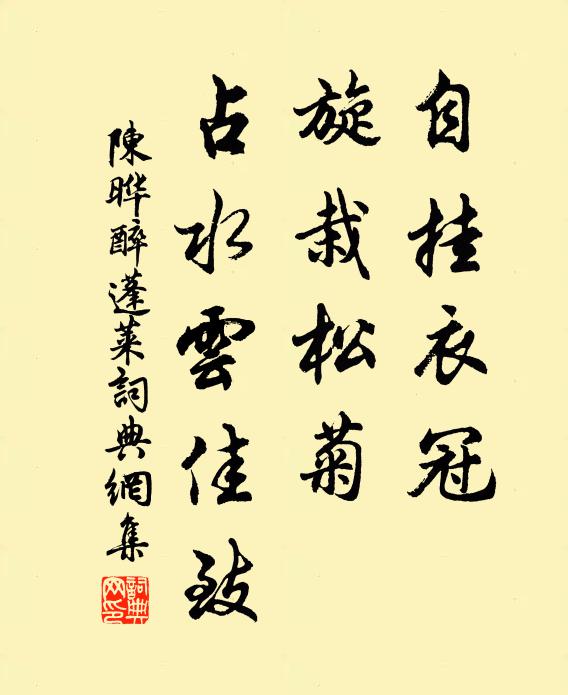 自挂衣冠
旋栽松菊
占水雲佳致
陳晔醉蓬莱詞典網集
詞典
网印